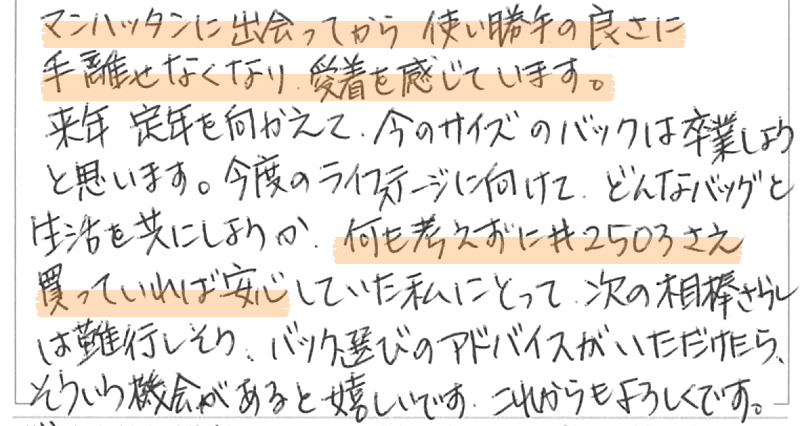 マンハッタンに出会ってから 使い勝手の良さに
手離せなくなり、愛着を感じています。
来年 定年を向かえて、今のサイズのバックは卒業しよう
と思います。今度のライフステージに向けて、どんなバッグと
生活を共にしようか、何も考えずに#2503さえ
買っていれば安心していた私にとって、次の相棒さがし
は難行しそう、バック選びのアドバイスがいただけたら、
そういう機会があると嬉しいです。これからもよろしくです。